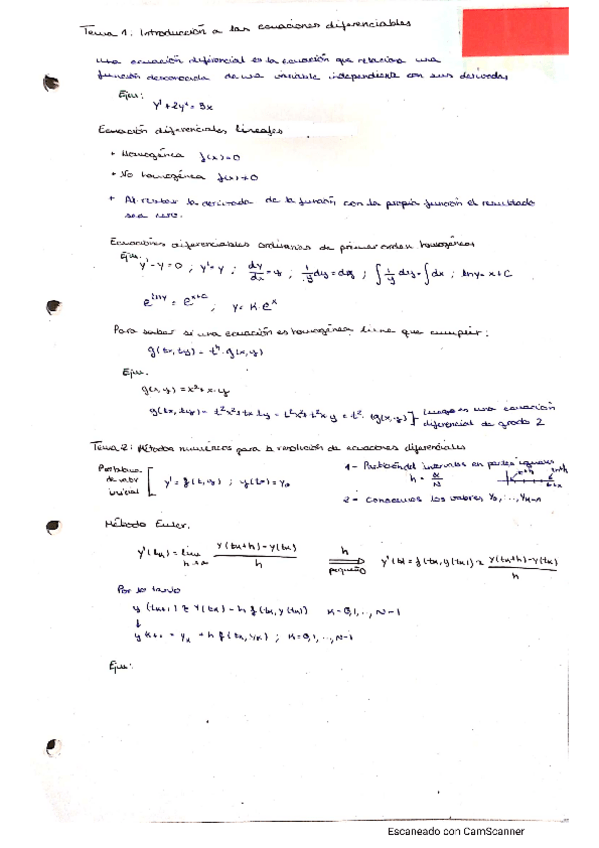 Tema 1. Introducción a las ecuaciones diferenciables
una ecuación diferencial es la ecuación que relaciona una
función desconocida de una variable independiente con sus derivadas
Ejm:
y' + 2y² = 3x
Ecuación diferenciales lineales
+ Homogénea f(x)=0
+ No homogénea f(x)≠0
+ Al restar la derivada de la función con la propia función el resultado
sea cero.
Ecuaciones diferenciales ordinarias de primer orden homogéneas
Ejm.
y'-y=0 ; y'=y ; dy/dx = y ; 1/y dy = dx ; ∫ 1/y dy = ∫ dx ; lny = x+C
e^lny = e^x+C ; y = K·e^x
Para saber si una ecuación es homogénea tiene que cumplir:
g(tx, ty) = t^n · g(x,y)
Ejm.
g(x,y) = x²+x·y
g(tx, ty) = t²x²+tx·ty = t²x²+t²x·y = t²·(g(x,y)) Luego es una ecuación
diferencial de grado 2
Tema 2: Métodos numéricos para la resolución de ecuaciones diferenciales
Problema
de valor
inicial
y' = f(t,y) ; y(t₀)=y₀
1- Partición del intervalos en partes iguales
2- Conocemos los valores y₀, ...,
Método Euler.
y'(tk) = lim h→∞ Y(tk+h)-Y(tk) / h
h
pequeño
y'(tk) = f(tk, y(tk)) ≈ Y(tk+h)-Y(tk) / h
Por lo tanto
y(tk+1) ≈ Y(tk) - h f(tk, y(tk)) K=0,1, ..., N-1
↓
yk+1 = yk + h f(tk, yk) ; K=0,1, ..., N-1
Ejm:
Escaneado con CamScanner